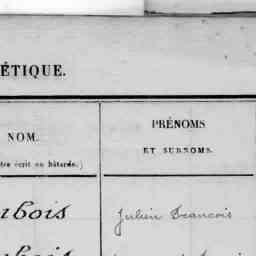 ÉTIQUE.
NOM.
tre écrit en bâtarde.)
PRÉNOMS
ET SURNOMS.
ubois
Julien Francois